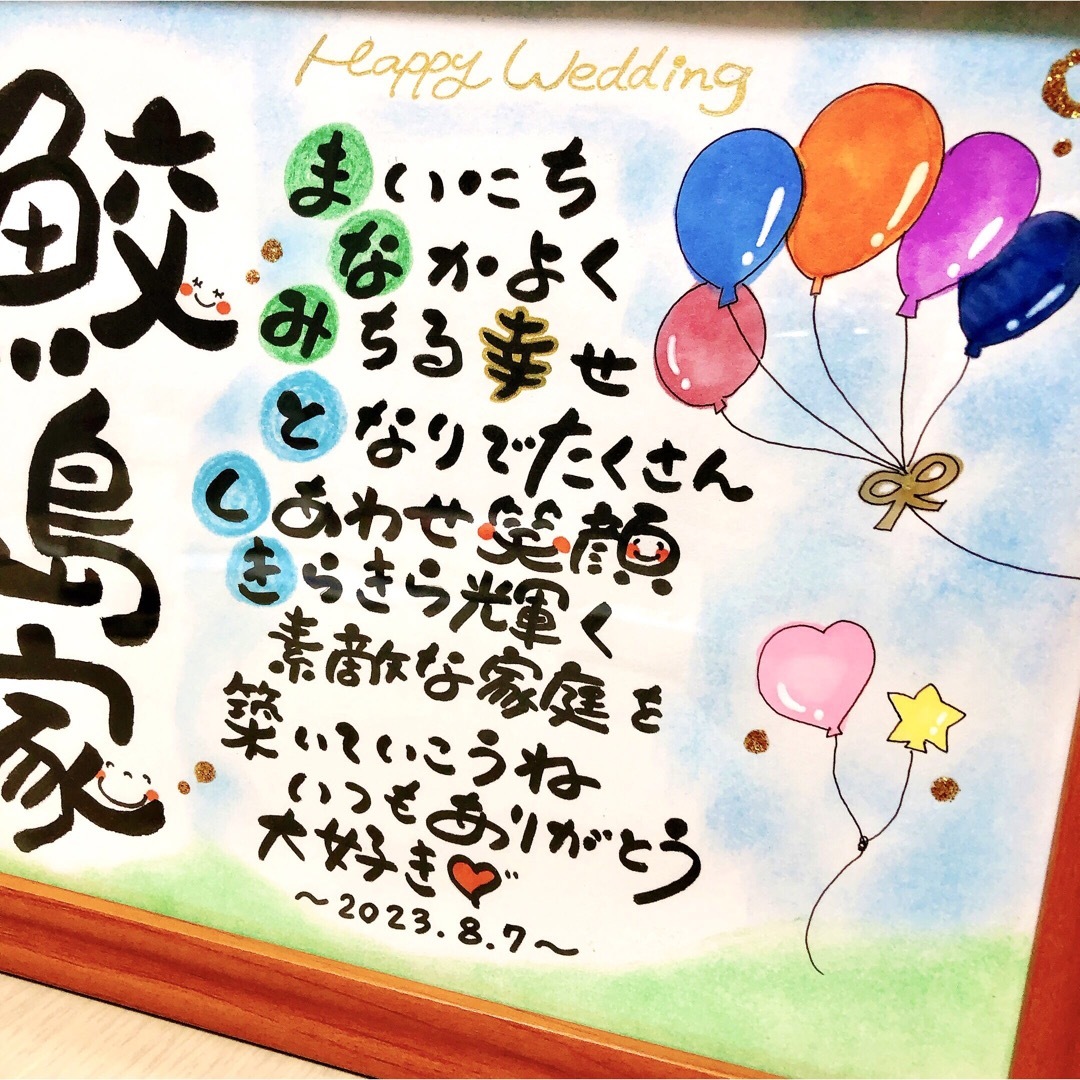 Happy Wedding
鮫島家
まいにち
なかよく
みちる幸せ
となりでたくさん
しあわせ笑顔
きらきら光輝く
素敵な家庭を
築いていこうね
いつもありがとう
大好き♥
～2023.8.7～